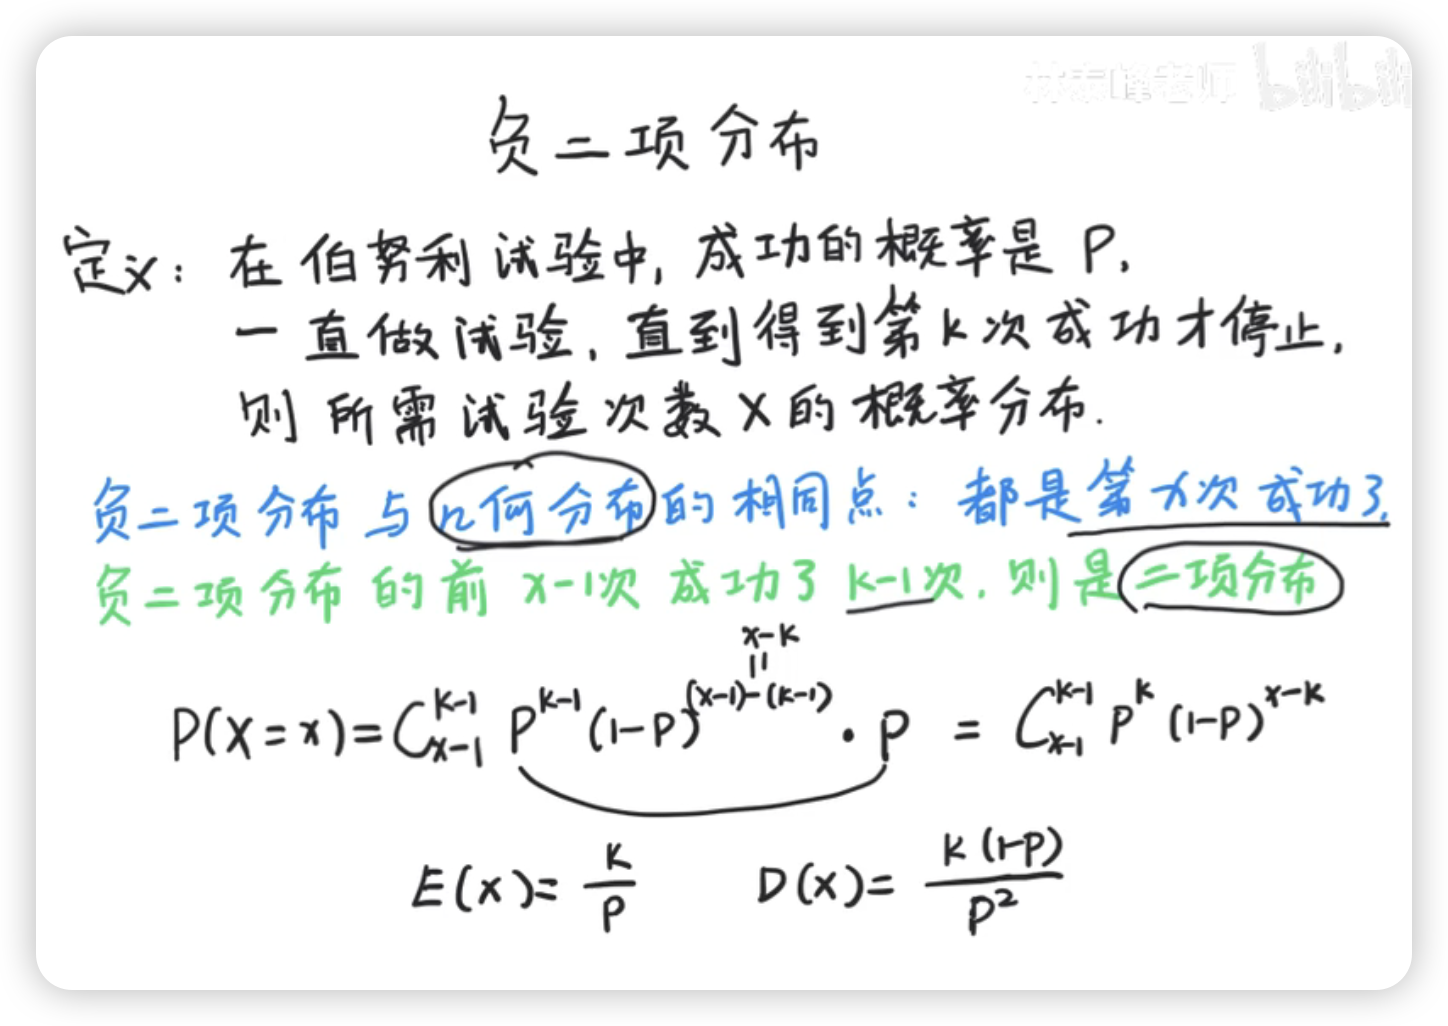 林泰峰老师 bilibili
负二项分布
定义：在伯努利试验中，成功的概率是 P，
一直做试验，直到得到第 k 次成功才停止，
则所需试验次数 X 的概率分布．
负二项分布与几何分布的相同点：都是第 x 次成功了，
负二项分布的前 x-1次 成功了 k-1次，则是二项分布
x-k
=
P(X=x)=C_{x-1}^{k-1} P^{k-1} (1-P)^{(x-1)-(k-1)} · P = C_{x-1}^{k-1} P^k (1-P)^{x-k}
E(x)= k/P D(x)= k(1-P)/P²